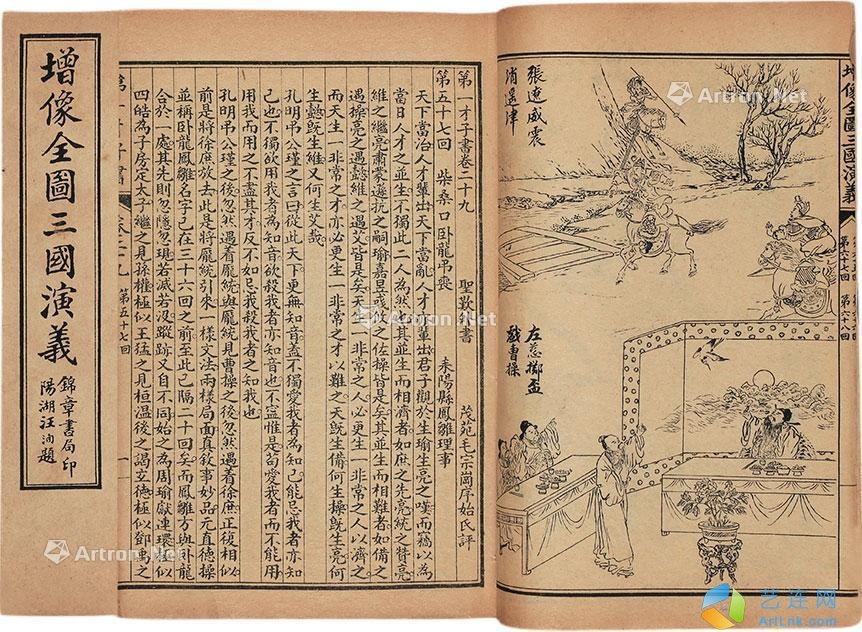 增像全圖三國演義
錦章書局印
陽湖汪洵題
第一才子書卷二十九 聖歎外書 茂苑毛宗崗序始氏評
第五十七回 柴桑口臥龍弔喪 耒陽縣鳳雛理事
天下當治人才輩出天下當亂人才亦輩出君子觀於生瑜生亮之嘆而竊以為
當日人才之並生不獨此二人為然也其並生而相濟者如庶之先亮統之贊亮
維之繼亮肅蒙遜抗之嗣瑜嘉昱或攸之佐操皆是矣其並生而相難者如備之
遇操亮之遇懿維之遇艾皆是矣天生一非常之人必更生一非常之人以濟之
而天生一非常之才亦必更生一非常之才以難之天既生備何生操既生亮何
生懿既生維又何生艾哉
孔明弔公瑾之言曰從此天下更無知音蓋不獨愛我者為知己能忌我者亦知
己也不獨欲用我者為知音欲殺我者亦知音也不寧惟是苟愛我者而不能用
用我而用之不盡其才反不如忌我殺我者之知我也
孔明弔公瑾之後忽然遇着龐統與龐統見曹操之後忽然遇着徐庶正復相似
前是將徐庶放去此是將龐統引來一樣文法兩樣局面真敘事妙品元直德操
並稱臥龍鳳雛名字已在三十六回之前至此已隔二十回矣而鳳雛方與臥龍
合於一處其先則忽隱忽現若滅若沒蹤跡又自不同始之為周瑜獻連環極似
四皓為子房定太子繼之見孫權極似王猛之見桓溫後之謁立德極似鄧禹之
第一才子書 卷二十九 第五十七回 一
張遼威震
逍遙津
左慈擲盃
戲曹操
增像全圖三國演義
第六十七回
第六十八回
Artron.Net
Artron.Net
Artron.Net
Artron.Net
艺连网
ArtLnk.Com